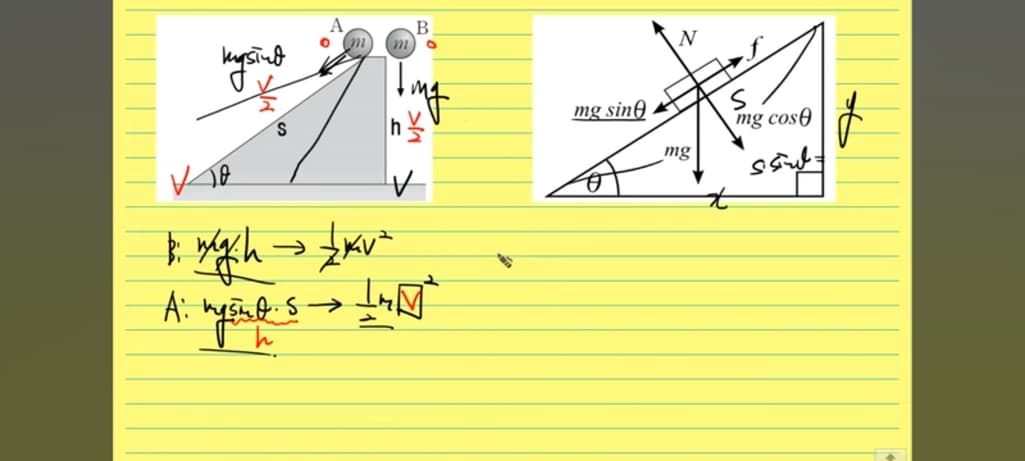 A B
m m
mg sinθ
V/2
mg
s
h V/2
V θ V
N
f
mg sinθ
s
mg cosθ
y
mg
s sinθ =
θ
x
B: mg·h → 1/2 mv²
A: mg sinθ · s → 1/2 m V²
h